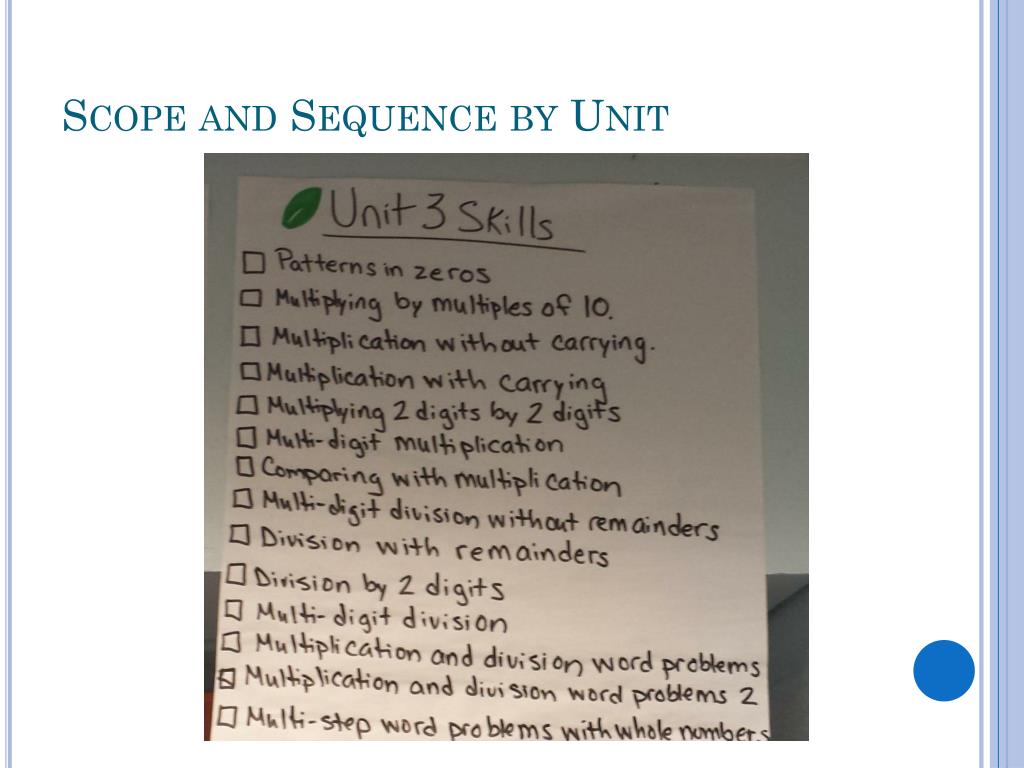 Scope and Sequence by Unit
Unit 3 Skills
Patterns in zeros
Multiplying by multiples of 10.
Multiplication without carrying.
Multiplication with carrying
Multiplying 2 digits by 2 digits
Multi-digit multiplication
Comparing with multiplication
Multi-digit division without remainders
Division with remainders
Division by 2 digits
Multi-digit division
Multiplication and division word problems
Multiplication and division word problems 2
Multi-step word problems with whole numbers